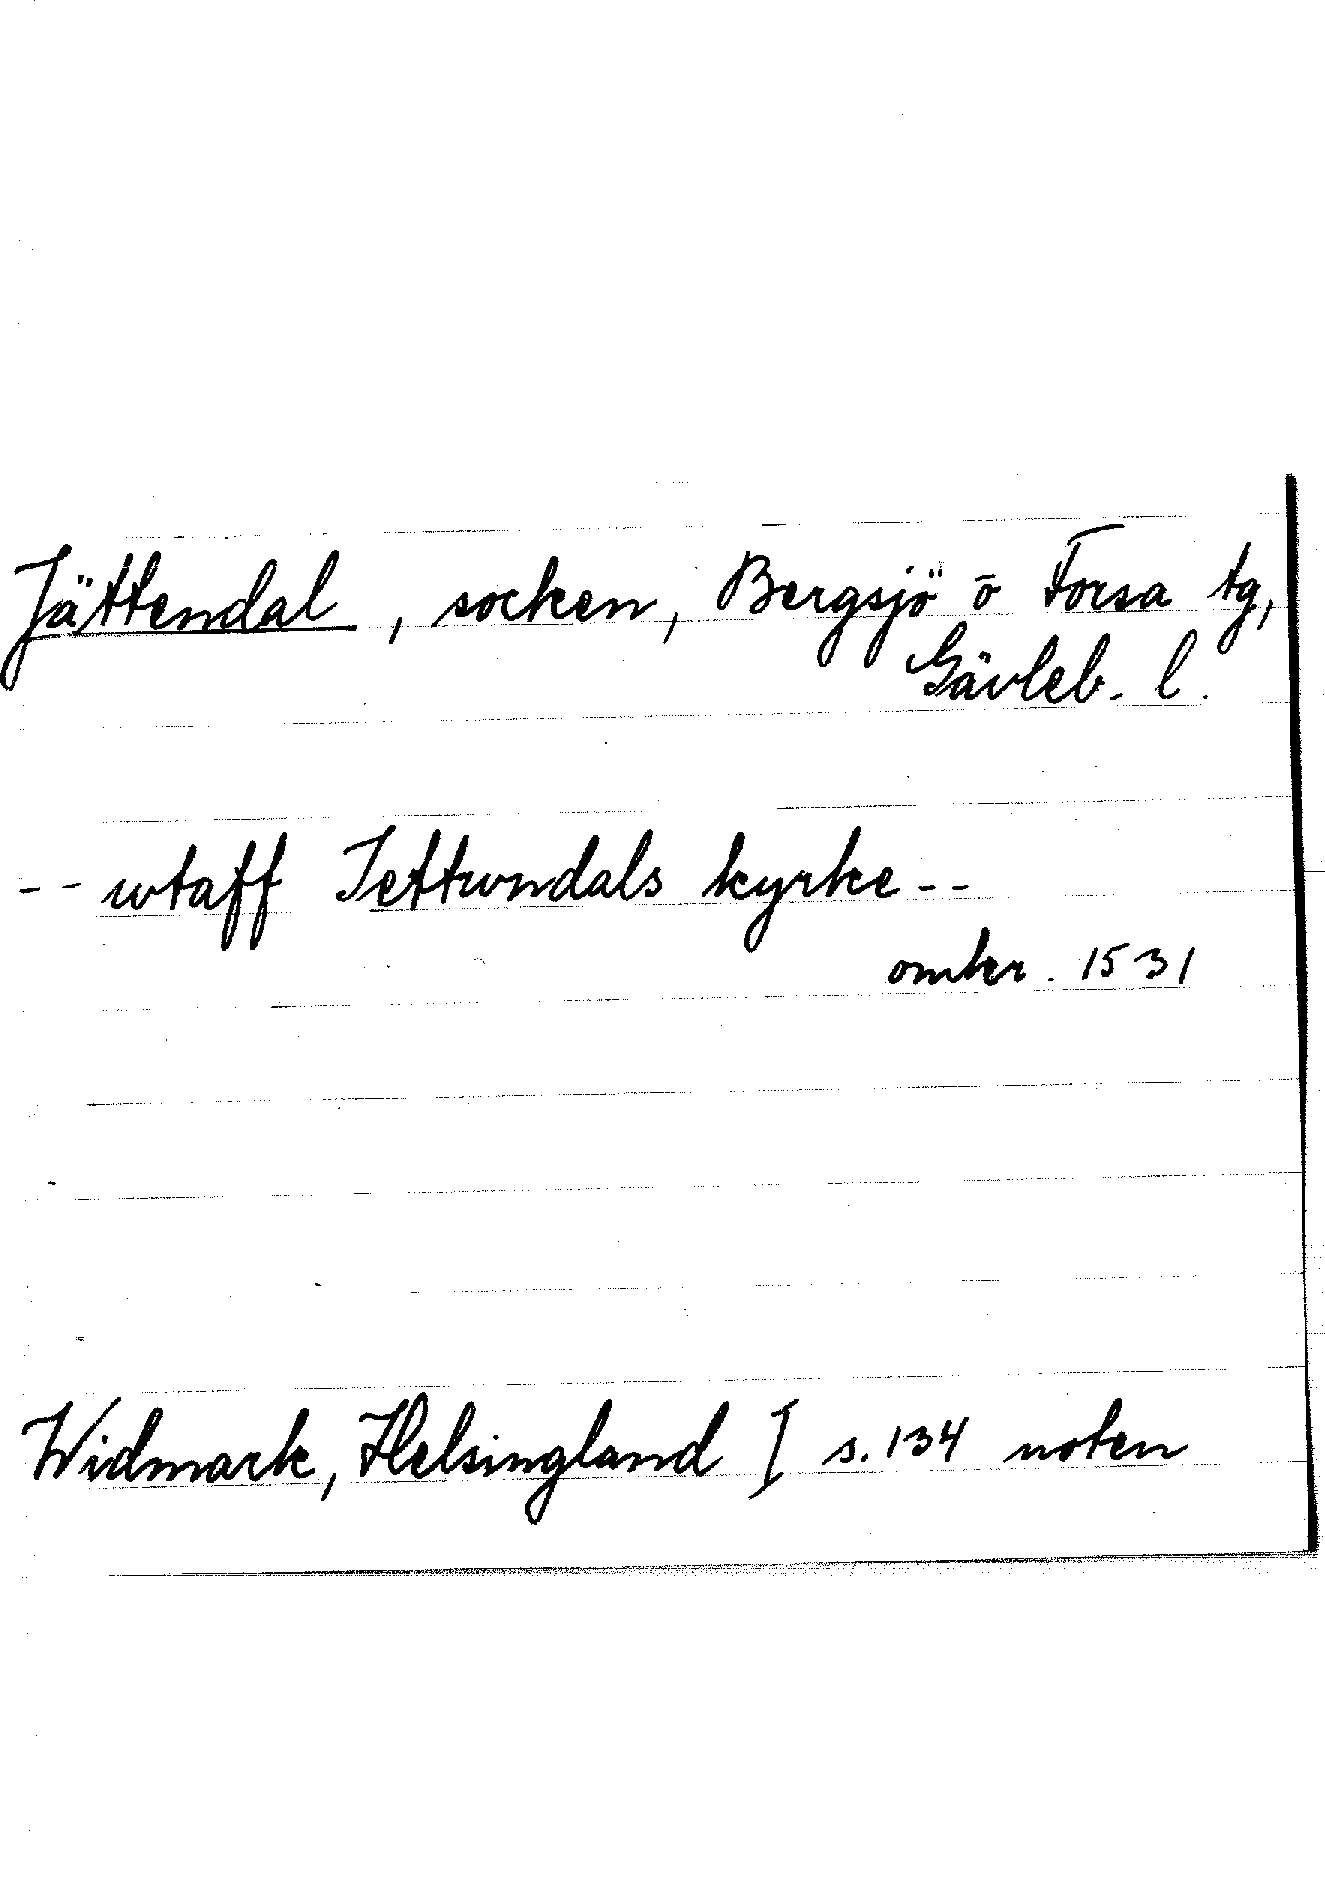 Jättendal, socken, Bergsjö o Forsa tg,
Gävleb. l.
-- wtaff Jettwndals kyrke --
omkr. 1531
Widmark, Helsingland I s. 134 noten